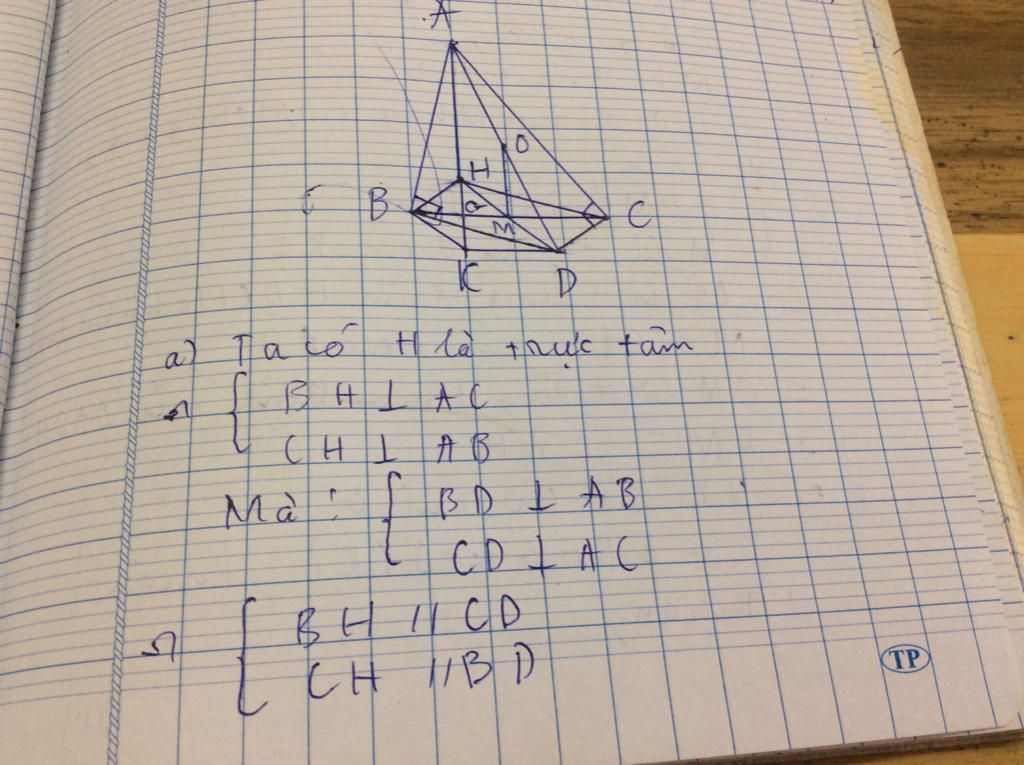 A
O
H
B
C
M
K
D
a) Ta có H là trực tâm
⇒ { BH ⊥ AC
CH ⊥ AB
Mà : { BD ⊥ AB
CD ⊥ AC
⇒ { BH // CD
CH // BD
TP